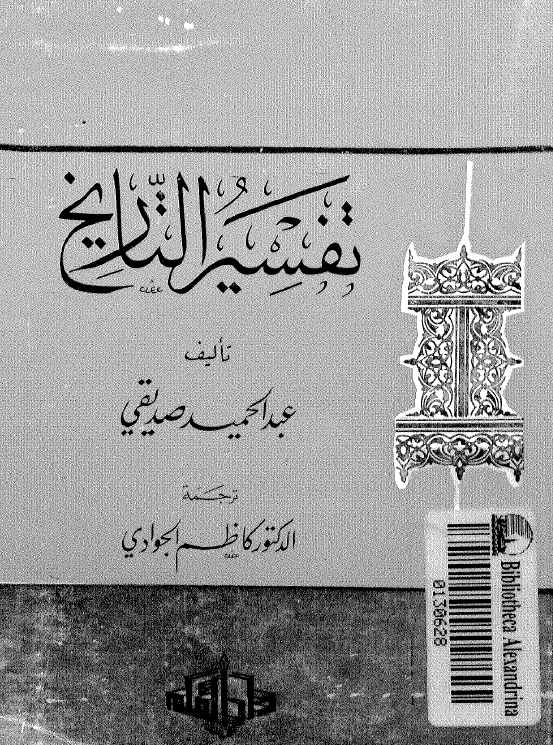 تفسير التاريخ
تأليف
عبد الحميد صديقي
ترجمة
الدكتور كاظم الجوادي
دار القلم
Bibliotheca Alexandrina
0130628